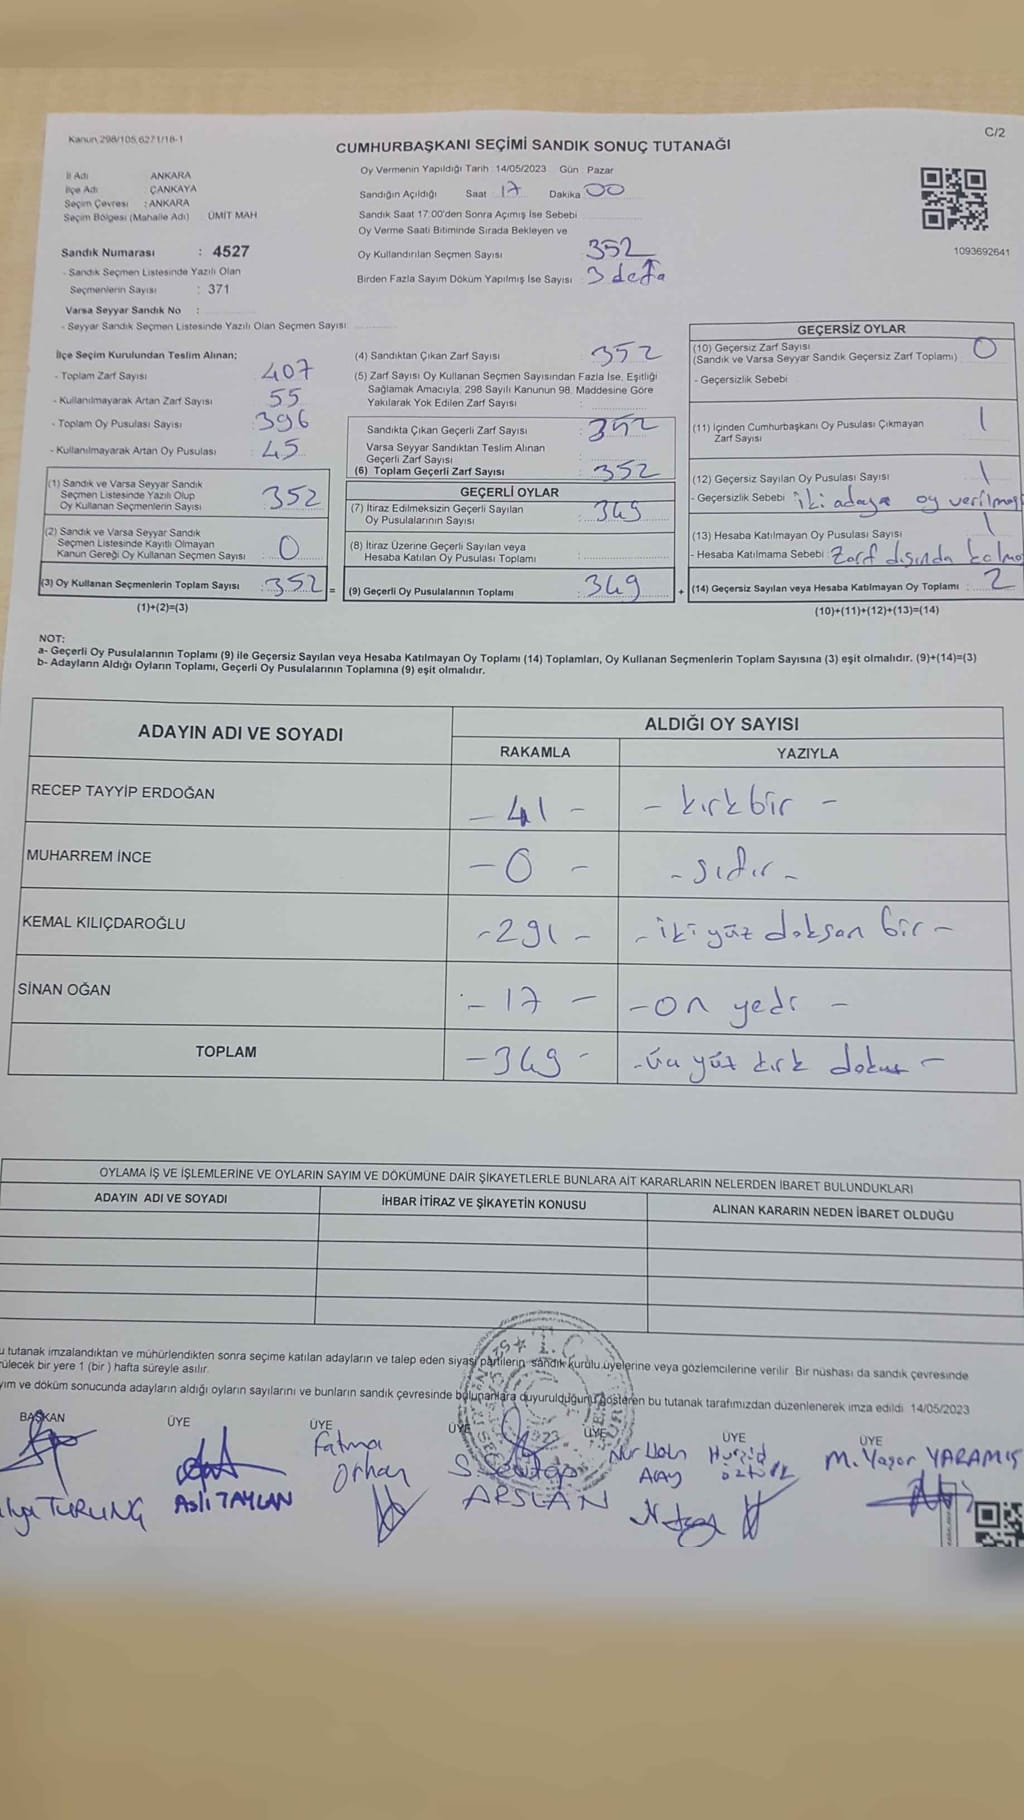 Kanun 298/105,6271/18-1
C/2
CUMHURBAŞKANI SEÇİMİ SANDIK SONUÇ TUTANAĞI
İl Adı ANKARA
İlçe Adı ÇANKAYA
Seçim Çevresi : ANKARA
Seçim Bölgesi (Mahalle Adı) ÜMİT MAH
Sandık Numarası : 4527
- Sandık Seçmen Listesinde Yazılı Olan
Seçmenlerin Sayısı : 371
Varsa Seyyar Sandık No :
- Seyyar Sandık Seçmen Listesinde Yazılı Olan Seçmen Sayısı
Oy Vermenin Yapıldığı Tarih 14/05/2023 Gün Pazar
Sandığın Açıldığı Saat 17 Dakika 00
Sandık Saat 17:00'den Sonra Açımış İse Sebebi
Oy Verme Saati Bitiminde Sırada Bekleyen ve
Oy Kullandırılan Seçmen Sayısı 352
Birden Fazla Sayım Döküm Yapılmış İse Sayısı 3 defa
1093692641
İlçe Seçim Kurulundan Teslim Alınan;
- Toplam Zarf Sayısı 407
- Kullanılmayarak Artan Zarf Sayısı 55
- Toplam Oy Pusulası Sayısı 396
- Kullanılmayarak Artan Oy Pusulası 45
(1) Sandık ve Varsa Seyyar Sandık
Seçmen Listesinde Yazılı Olup
Oy Kullanan Seçmenlerin Sayısı 352
(2) Sandık ve Varsa Seyyar Sandık
Seçmen Listesinde Kayıtlı Olmayan
Kanun Gereği Oy Kullanan Seçmen Sayısı 0
(3) Oy Kullanan Seçmenlerin Toplam Sayısı : 352 =
(1)+(2)=(3)
(4) Sandıktan Çıkan Zarf Sayısı 352
(5) Zarf Sayısı Oy Kullanan Seçmen Sayısından Fazla İse, Eşitliği
Sağlamak Amacıyla; 298 Sayılı Kanunun 98. Maddesine Göre
Yakılarak Yok Edilen Zarf Sayısı
Sandıkta Çıkan Geçerli Zarf Sayısı 352
Varsa Seyyar Sandıktan Teslim Alınan
Geçerli Zarf Sayısı
(6) Toplam Geçerli Zarf Sayısı 352
GEÇERLİ OYLAR
(7) İtiraz Edilmeksizin Geçerli Sayılan
Oy Pusulalarının Sayısı 349
(8) İtiraz Üzerine Geçerli Sayılan veya
Hesaba Katılan Oy Pusulası Toplamı
(9) Geçerli Oy Pusulalarının Toplamı : 349 +
GEÇERSİZ OYLAR
(10) Geçersiz Zarf Sayısı
(Sandık ve Varsa Seyyar Sandık Geçersiz Zarf Toplamı) 0
- Geçersizlik Sebebi
(11) İçinden Cumhurbaşkanı Oy Pusulası Çıkmayan
Zarf Sayısı 1
(12) Geçersiz Sayılan Oy Pusulası Sayısı 1
- Geçersizlik Sebebi iki adaya oy verilmaş
(13) Hesaba Katılmayan Oy Pusulası Sayısı 1
- Hesaba Katılmama Sebebi Zarf dışında kalmo
(14) Geçersiz Sayılan veya Hesaba Katılmayan Oy Toplamı 2
(10)+(11)+(12)+(13)=(14)
NOT:
a- Geçerli Oy Pusulalarının Toplamı (9) ile Geçersiz Sayılan veya Hesaba Katılmayan Oy Toplamı (14) Toplamları, Oy Kullanan Seçmenlerin Toplam Sayısına (3) eşit olmalıdır. (9)+(14)=(3)
b- Adayların Aldığı Oyların Toplamı, Geçerli Oy Pusulalarının Toplamına (9) eşit olmalıdır.
ADAYIN ADI VE SOYADI ALDIĞI OY SAYISI
RAKAMLA YAZIYLA
RECEP TAYYİP ERDOĞAN - 41 - - kırkbir -
MUHARREM İNCE - 0 - - sıfır -
KEMAL KILIÇDAROĞLU - 291 - - iki yüz doksan bir -
SİNAN OĞAN - 17 - - on yedi -
TOPLAM - 349 - - üç yüz kırk dokuz -
OYLAMA İŞ VE İŞLEMLERİNE VE OYLARIN SAYIM VE DÖKÜMÜNE DAİR ŞİKAYETLERLE BUNLARA AİT KARARLARIN NELERDEN İBARET BULUNDUKLARI
ADAYIN ADI VE SOYADI İHBAR İTİRAZ VE ŞİKAYETİN KONUSU ALINAN KARARIN NEDEN İBARET OLDUĞU
u tutanak imzalandıktan ve mühürlendikten sonra seçime katılan adayların ve talep eden siyasi partilerin sandık kurulu üyelerine veya gözlemcilerine verilir. Bir nüshası da sandık çevresinde
rülecek bir yere 1 (bir) hafta süreyle asılır.
yım ve döküm sonucunda adayların aldığı oyların sayılarını ve bunların sandık çevresinde bulunanlara duyurulduğunu gösteren bu tutanak tarafımızdan düzenlenerek imza edildi 14/05/2023
BAŞKAN ÜYE ÜYE ÜYE ÜYE ÜYE ÜYE
TURUNÇ
Aslı TAYLAN
Fatma Orhan
ARSLAN
Nur
Hurşid Öztürk
M. Yaşar YARAMIŞ